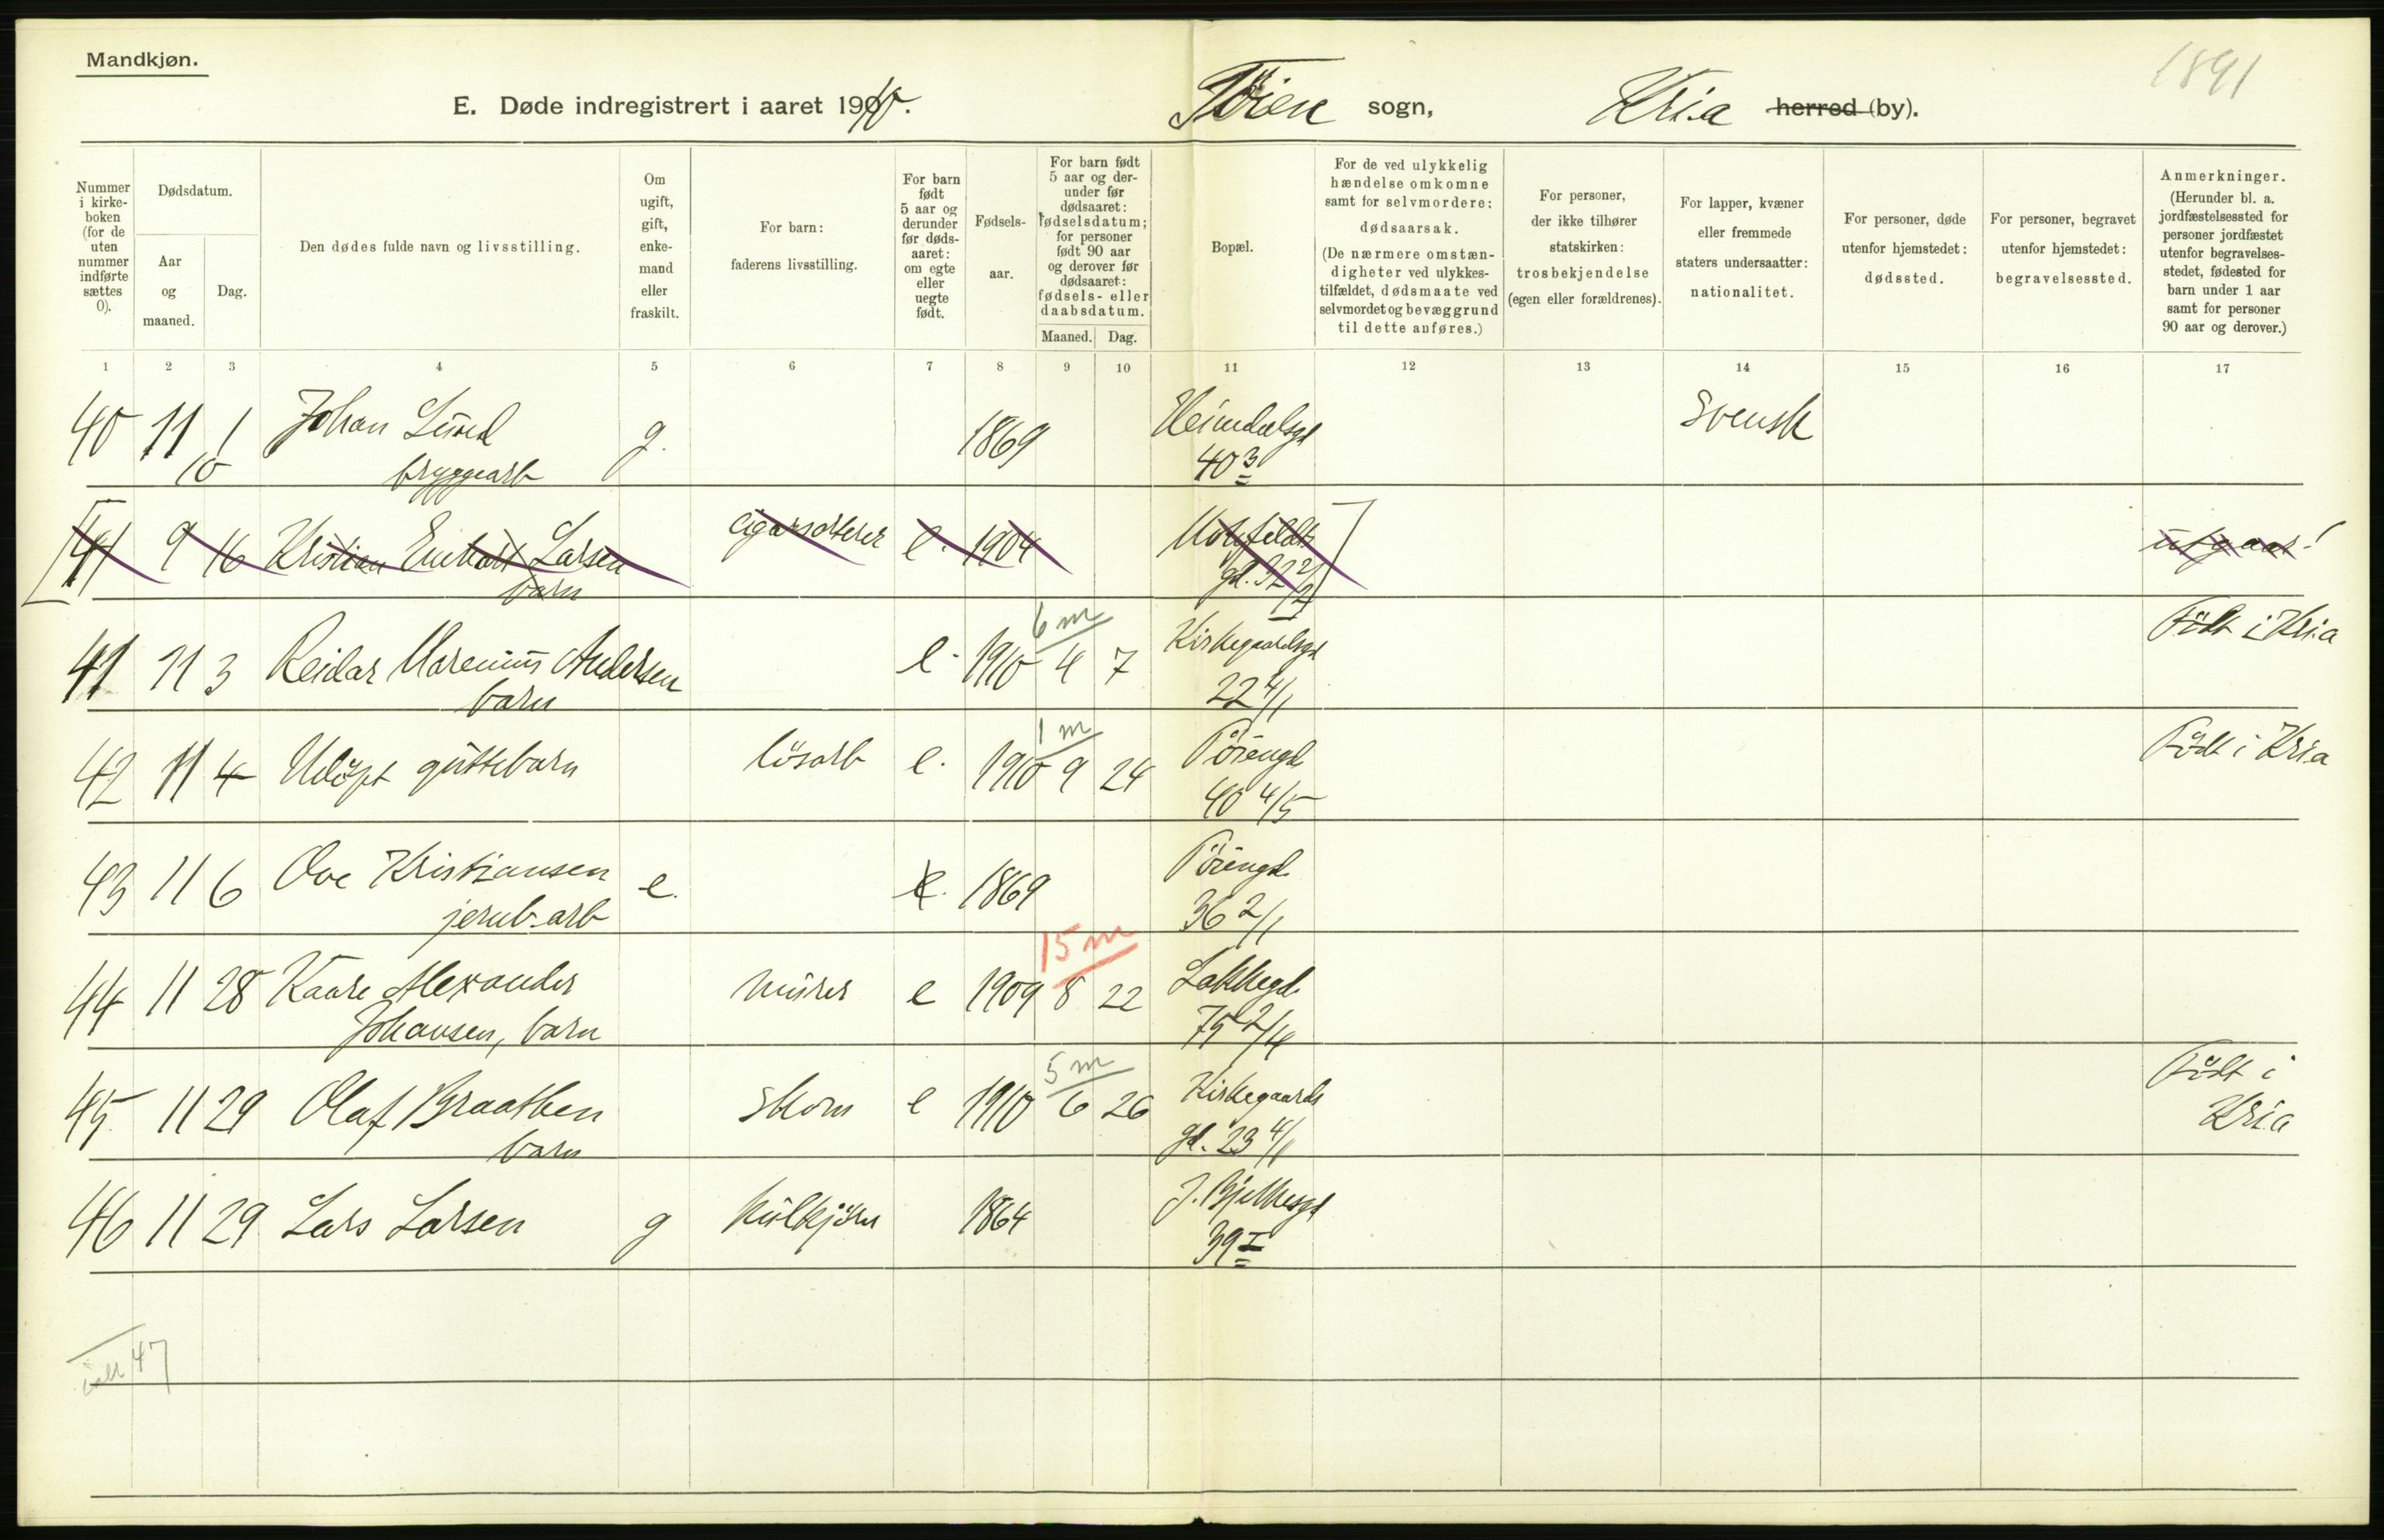 Mandkjøn.
1891
E. Døde indregistrert i aaret 1910.
Tøien sogn, Kria herred (by).
Nummer i kirkeboken (for de uten nummer indførte sættes 0).
Dødsdatum.
Aar og maaned.
Dag.
Den dødes fulde navn og livsstilling.
Om ugift, gift, enkemand eller fraskilt.
For barn: faderens livsstilling.
For barn født 5 aar og derunder før dødsaaret: om egte eller uegte født.
Fødselsaar.
For barn født 5 aar og derunder før dødsaaret: fødselsdatum; for personer født 90 aar og derover før dødsaaret: fødsels- eller daabsdatum.
Maaned. Dag.
Bopæl.
For de ved ulykkelig hændelse omkomne samt for selvmordere: dødsaarsak. (De nærmere omstændigheter ved ulykkestilfældet, dødsmaate ved selvmordet og bevæggrund til dette anføres.)
For personer, der ikke tilhører statskirken: trosbekjendelse (egen eller forældrenes).
For lapper, kvæner eller fremmede staters undersaatter: nationalitet.
For personer, døde utenfor hjemstedet: dødssted.
For personer, begravet utenfor hjemstedet: begravelsessted.
Anmerkninger. (Herunder bl. a. jordfæstelsessted for personer jordfæstet utenfor begravelsesstedet, fødested for barn under 1 aar samt for personer 90 aar og derover.)
1 2 3 4 5 6 7 8 9 10 11 12 13 14 15 16 17
40 11 1 Johan Lund g. 1869 Heimdalsgd Svensk
10 bryggearb 40 3
41 9 16 Kristian Larsen cigarsorterer e. 1904 utgaar!
barn gd. 32 2/2
6 m
41 11 3 Reidar Marenius Andersen e. 1910 4 7 Kirkegaardsgd Född i Kria
barn 22 4/1
1 m
42 11 4 Udöpt guttebarn lösarb e. 1910 9 24 Töiengd Född i Kria
40 4/5
43 11 6 Ove Kristiansen e. e. 1869 Töiengd.
jernb.arb 36 2/1
15 m
44 11 28 Kaare Alexander murer e 1909 8 22 Lakkegd.
Johansen, barn 75 2/4
5 m
45 11 29 Olaf Braathen skom e 1910 6 26 Kirkegaards Född i
barn gd. 23 4/1 Kria
46 11 29 Lars Larsen g kulkjörer 1864 J. Bjelkesgd
39 I
ialt 47